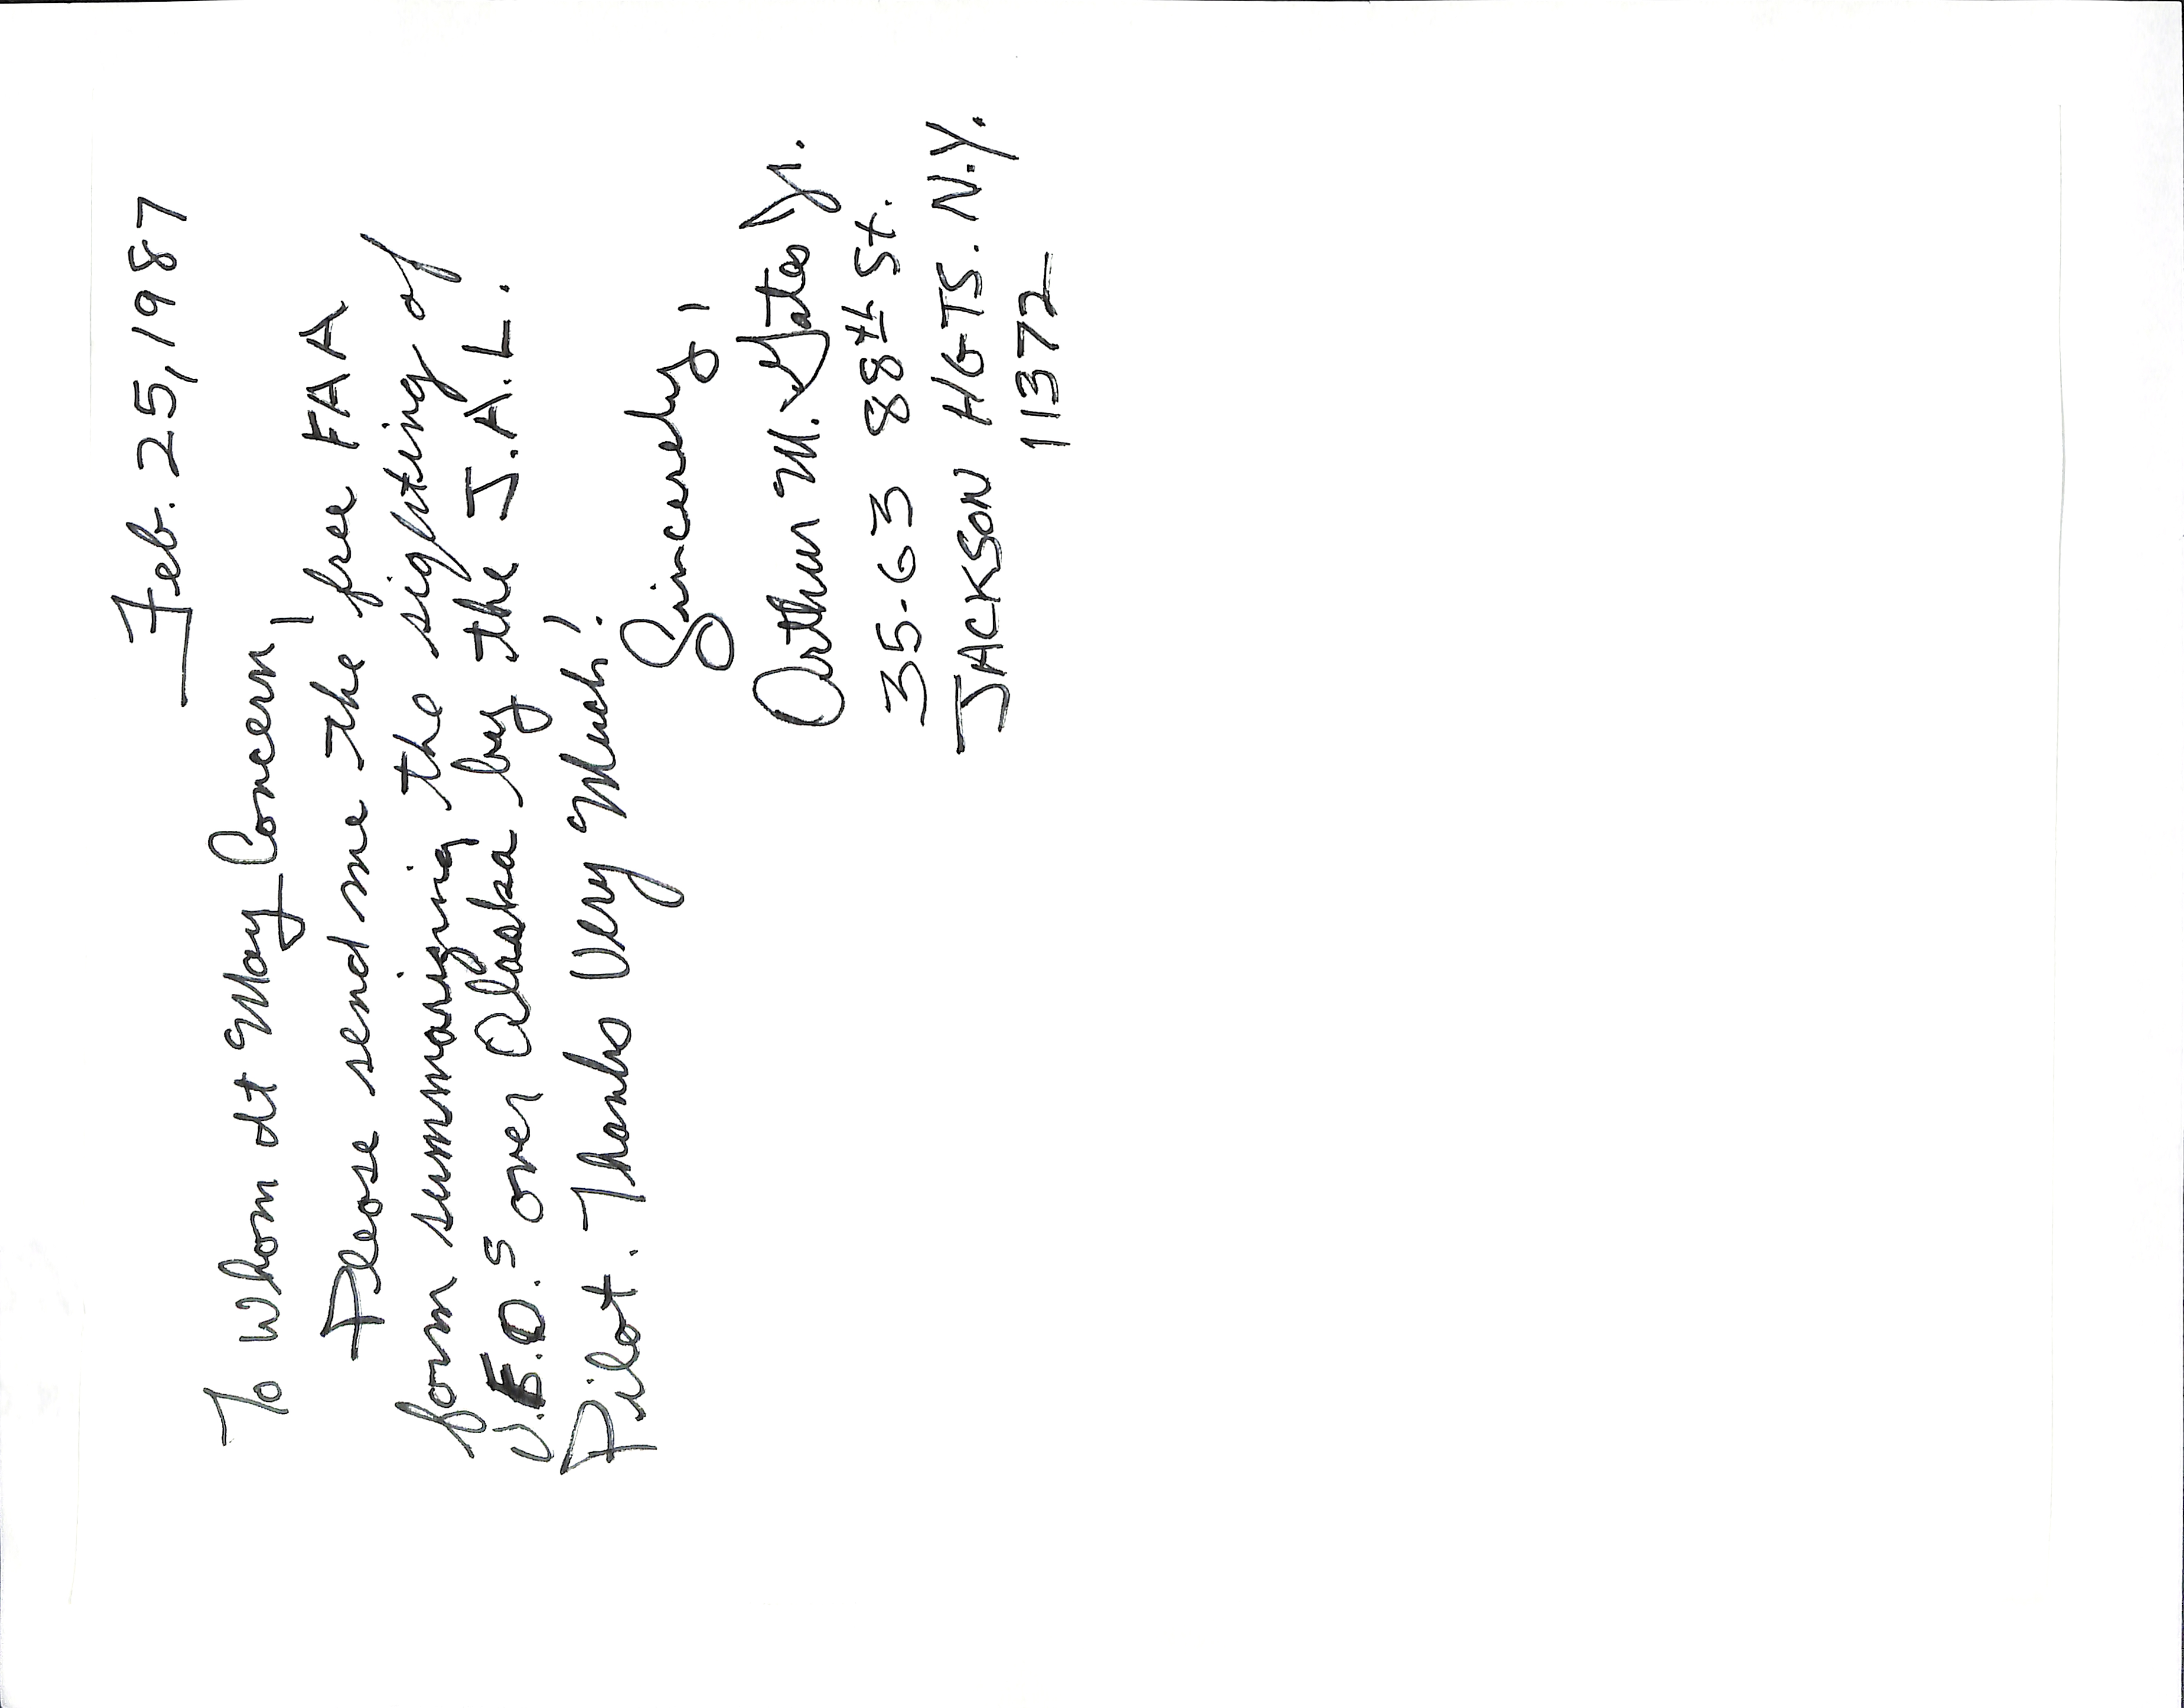 Feb. 25, 1987
To Whom It May Concern,
Please send me the free FAA
form summarizing the sighting of
U.F.O.s over Alaska by the J.A.L.
Pilot. Thanks Very Much!
Sincerely,
Arthur M. Gates Jr.
35-63 88th St.
JACKSON HGTS. N.Y.
11372